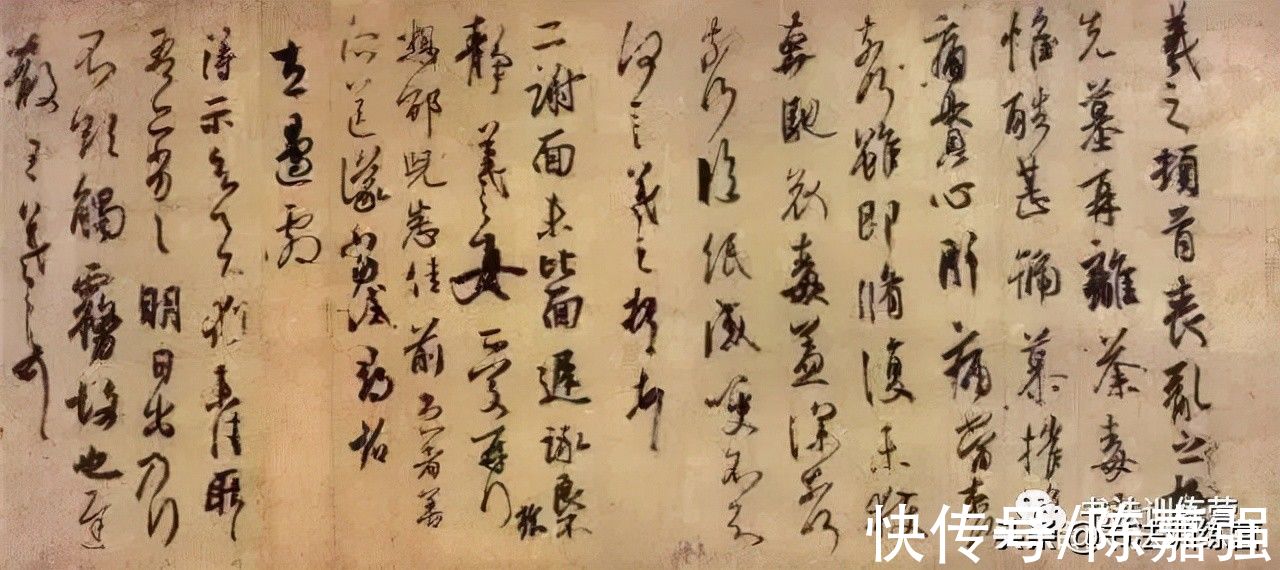 羲之頓首喪亂之
先墓再離荼毒
惟酷甚號慕摧
痛貫心肝痛當奈
奈何雖即脩復未獲
奔馳哀毒益深奈何
奈何臨紙感哽不知
何言羲之頓首頓首
二謝面未比面遲詠良不
靜羲之女愛再拜
想邵兒悉佳前患者善
所送議當試尋省
左邊劇
得示知足下猶未佳耿耿
吾亦劣劣明日出乃行
不欲觸霧故也遲
散王羲之頓首
书法训练营
快传号/陈嘉强